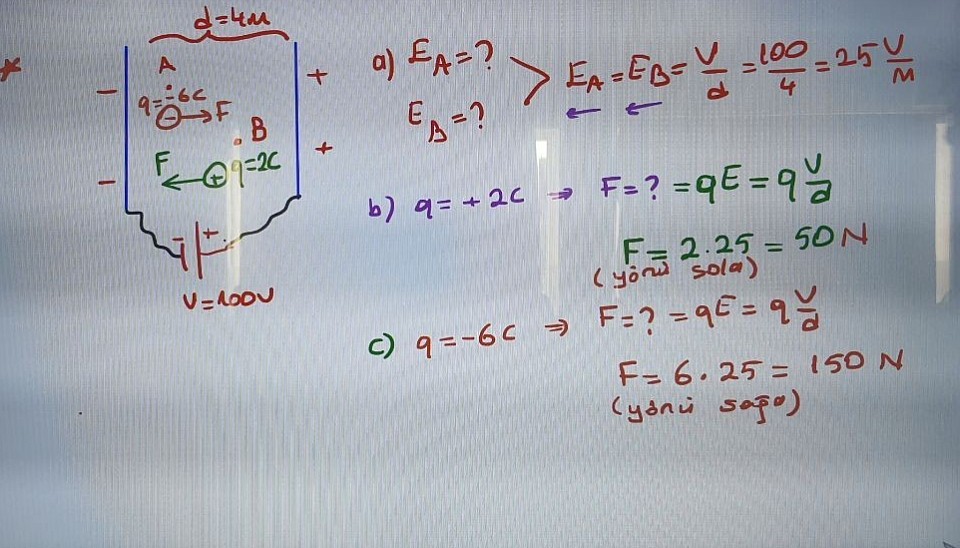 d=4m
*
A
q=-6C
- → F
B
F ← + q=2C
- +
- +
- +
V=100V
a) E_A=?
E_B=?
> E_A=E_B= V/d = 100/4 = 25 V/m
← ←
b) q=+2C ⇒ F=? =qE=q V/d
F= 2.25 = 50 N
(yönü sola)
c) q=-6C ⇒ F=? =qE= q V/d
F= 6.25 = 150 N
(yönü sağa)